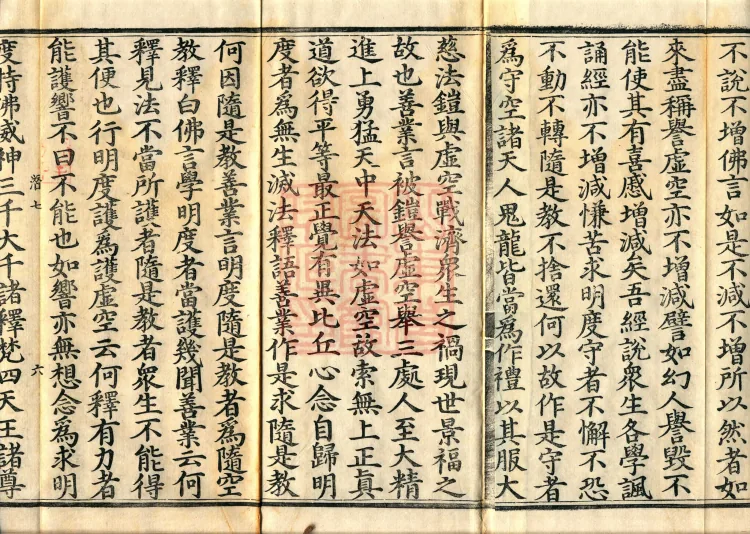 不說不增佛言如是不減不增所以然者如
來盡稱譽虛空亦不增減譬如幻人譽毀不
能使其有喜慼增減矣吾經說眾生各學諷
誦經亦不增減慊苦求明度守者不懈不恐
不動不轉隨是教不捨還何以故作是守者
為守空諸天人鬼龍皆當為作禮以其服大
慈法鎧與虛空戰濟眾生之禍現世景福之
故也善業言被鎧譽虛空舉三處人至大精
進上勇猛天中天法如虛空故索無上正真
道欲得平等最正覺有異比丘心念自歸明
度者為無生滅法釋語善業作是求隨是教
何因隨是教善業言明度隨是教者為隨空
教釋白佛言學明度者當護幾聞善業云何
釋見法不當所護者隨是教者眾生不能得
其便也行明度護為護虛空云何釋有力者
能護響不曰不能也如響亦無想念為求明
潛七 六
度持佛威神三千大千諸釋梵四天王諸尊